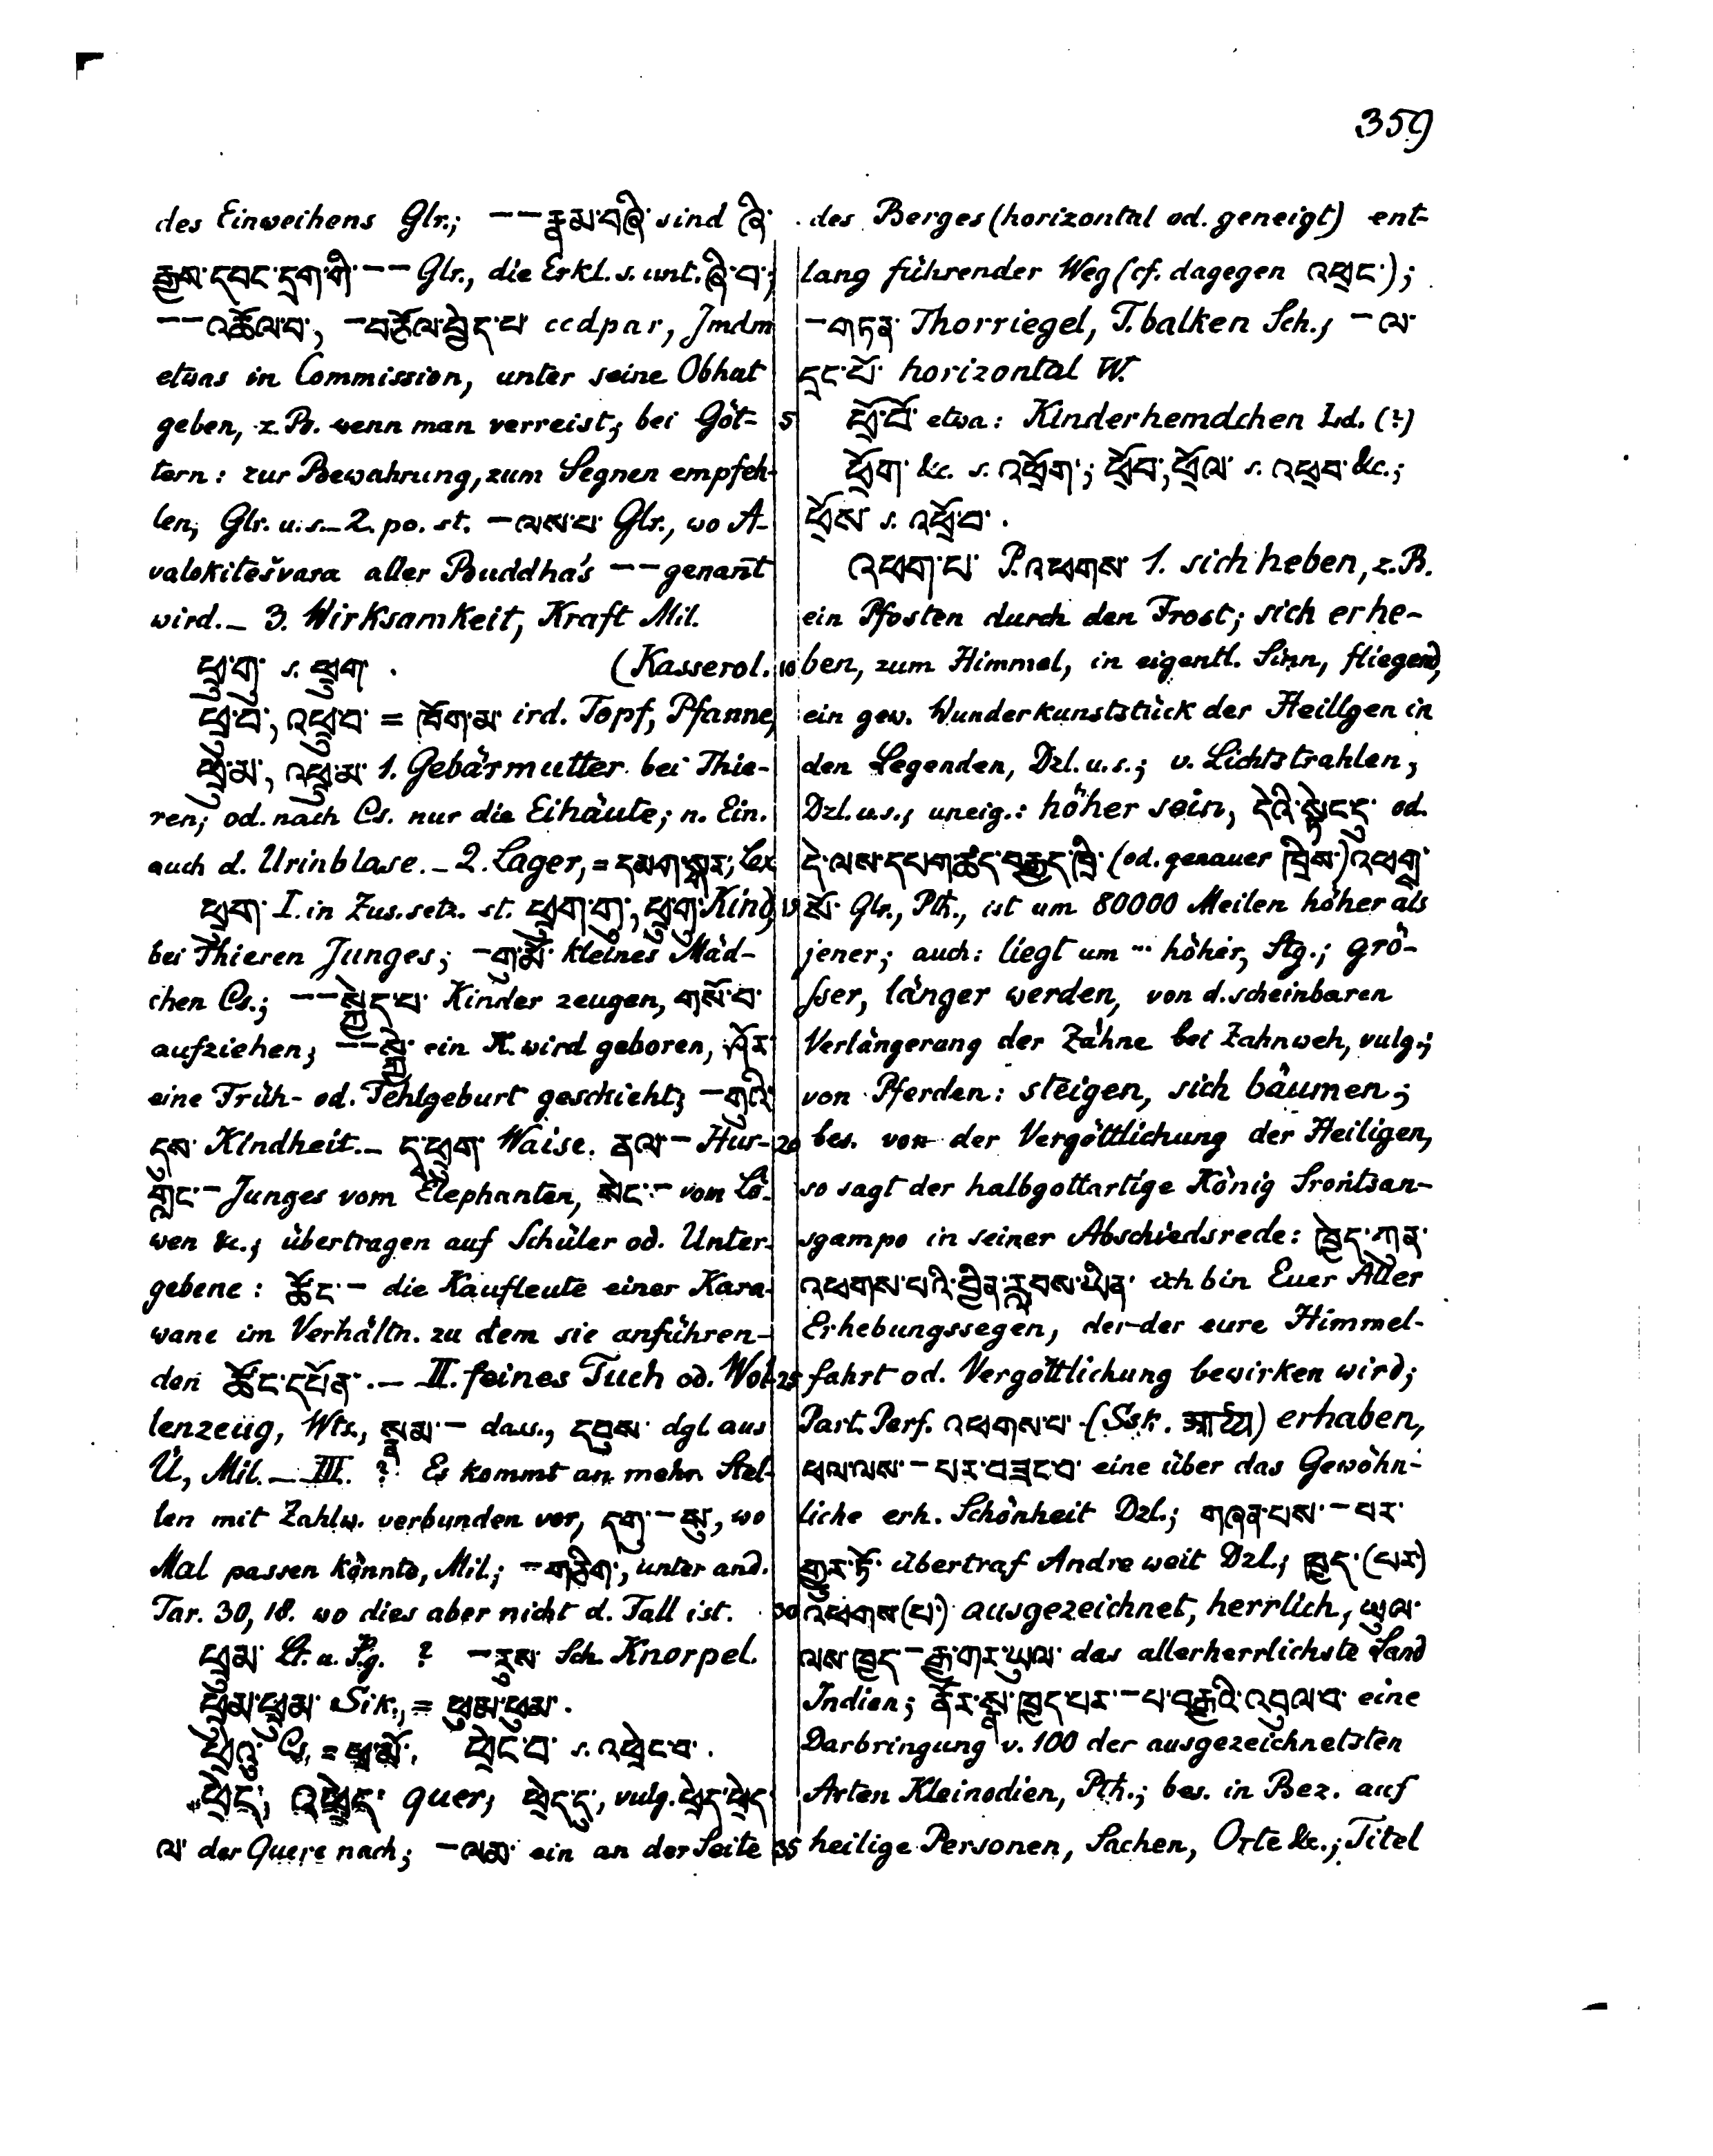 359
des Einweihens Glr.; –– རྣམ་བཞི་ sind ཞི་
རྒྱས་དབང་དྲག་གི་ –– Glr., die Erkl. s. unt. ཞི་བ་;
––འཚོལ་བ་, –བཅོལ་བྱེད་པ་ ccdpar, Jmdm
etwas in Commission, unter seine Obhut
geben, z. B. wenn man verreist; bei Göt-
tern: zur Bewahrung, zum Segnen empfeh-
len, Glr. u. s. – 2. po. st. –ལས་པ་ Glr., wo A-
valokitešvara aller Buddha's –– genañt
wird. – 3. Wirksamkeit, Kraft Mil.
ཕྲུ་ག་ s. ཕྲུག་ . (Kasserol.
ཕྲུ་བ་, འཕྲུ་བ་ = ཁོག་མ་ ird. Topf, Pfanne,
ཕྲུ་མ་, འཕྲུ་མ་ 1. Gebärmutter bei Thie-
ren, od. nach Cs. nur die Eihäute; n. Ein.
auch d. Urinblase. – 2. Lager, = དམག་སྒར་, Lex
ཕྲུག་ I. in Zus.setz. st. ཕྲུག་གུ་, ཕྲུ་གུ་ Kind,
bei Thieren Junges; –གུ་མོ་ kleines Mäd-
chen Cs.; ––སྐྱེད་པ་ Kinder zeugen, གསོ་བ་
aufziehen; ––སྐྱེ་ ein K. wird geboren, ཤོར་
eine Früh- od. Fehlgeburt geschieht; –གུའི་
དུས་ Kindheit. – ད་ཕྲུག་ Waise. ནལ་– Hur-
གླང་– Junges vom Elephanten, སེང་– vom Lö-
wen &c.; übertragen auf Schüler od. Unter-
gebene: ཚོང་– die Kaufleute einer Kara-
wane im Verhältn. zu dem sie anführen-
den ཚོང་དཔོན་ . – II. feines Tuch od. Wol-
lenzeüg, Wts., སྣམ་– dass., དབུས་ dgl. aus
Ü, Mil. – III. ? Es kommt an mehr Stel-
len mit Zahlw. verbunden vor, དགུ་– སུ་, wo
Mal passen könnte, Mil.; –གཅིག་, unter and.
Tar. 30, 18. wo dies aber nicht d. Fall ist.
ཕྲུམ་ Lt. u. Pg. ? –རུས་ Sch. Knorpel.
ཕྲུམ་ཕྲུམ་ Sik., = ཕུམ་ཕུམ་ .
ཕྲེའུ་ Cs. = ཕྲ་མོ་, ཕྲེང་བ་ s. འཕྲེང་བ་ .
ཕྲེད་, འཕྲེད་ quer, ཕྲེད་དུ་, vulg. ཕྲེད་ཕྲེད་
ལ་ der Quere nach; –ལམ་ ein an der Seite
des Berges (horizontal od. geneigt) ent-
lang führender Weg (cf. dagegen འཕྲང་);
–གཏན་ Thorriegel, T.balken Sch.; –ལ་
དྲང་པོ་ horizontal W.
5 ཕྲོ་བོ་ etwa: Kinderhemdchen Ld. (?)
ཕྲོག་ &c. s. འཕྲོག་; ཕྲོབ་, ཕྲོལ་ s. འཕྲབ་ &c.;
ཕྲོས་ s. འཕྲོ་བ་ .
འཕག་པ་ P. འཕགས་ 1. sich heben, z. B.
ein Pfosten durch den Frost; sich erhe-
10 ben, zum Himmel, in eigentl. Sinn, fliegend,
ein gew. Wunderkunststück der Heiligen in
den Legenden, Dzl. u. s.; v. Lichtstrahlen,
Dzl. u. s., uneig.: höher sein, དེའི་སྟེང་དུ་ od.
དེ་ལས་དཔག་ཚད་བརྒྱད་ཁྲི་ (od. genauer ཁྲིས་) འཕག་
15 སོ་ Glr., Pth., ist um 80000 Meilen höher als
jener; auch: liegt um ... höher, Stg.; grö-
sser, länger werden, von d. scheinbaren
Verlängerung der Zähne bei Zahnweh, vulg.;
von Pferden: steigen, sich bäumen;
20 bes. von der Vergöttlichung der Heiligen,
so sagt der halbgottartige König Sroñtsan-
sgampo in seiner Abschiedsrede: ཁྱེད་ཀུན་
འཕགས་པའི་བྱིན་རླབས་ཡིན་ ich bin Euer Aller
Erhebungssegen, der der eure Himmel-
25 fahrt od. Vergöttlichung bewirken wird;
Part. Perf. འཕགས་པ་ (Sskr. आर्य्य) erhaben,
ཕལ་ལས་–པར་བཟང་བ་ eine über das Gewöhn-
liche erh. Schönheit Dzl.; གཞན་པས་–པར་
གྱུར་ཏོ་ übertraf Andre weit Dzl.; ཁྱད་(པར་)
30 འཕགས་(པ་) ausgezeichnet, herrlich, ཡུལ་
ལས་ཁྱད་–རྒྱ་གར་ཡུལ་ das allerherrlichste Land
Indien; ནོར་སྣ་ཁྱད་པར་–པ་བརྒྱའི་འབུལ་བ་ eine
Darbringung v. 100 der ausgezeichnetsten
Arten Kleinodien, Pth.; bes. in Bez. auf
35 heilige Personen, Sachen, Orte &c.; Titel